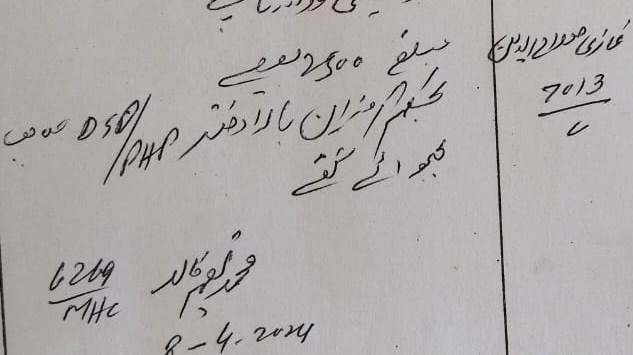 مبلغ 2500 روپے
غازی صلاح الدین
7013
بحکم افسران بالا دفتر DSP/PHP صاحب
بھجوائے گئے
محمد نعیم خالد
6269
MHC
8-4-2024